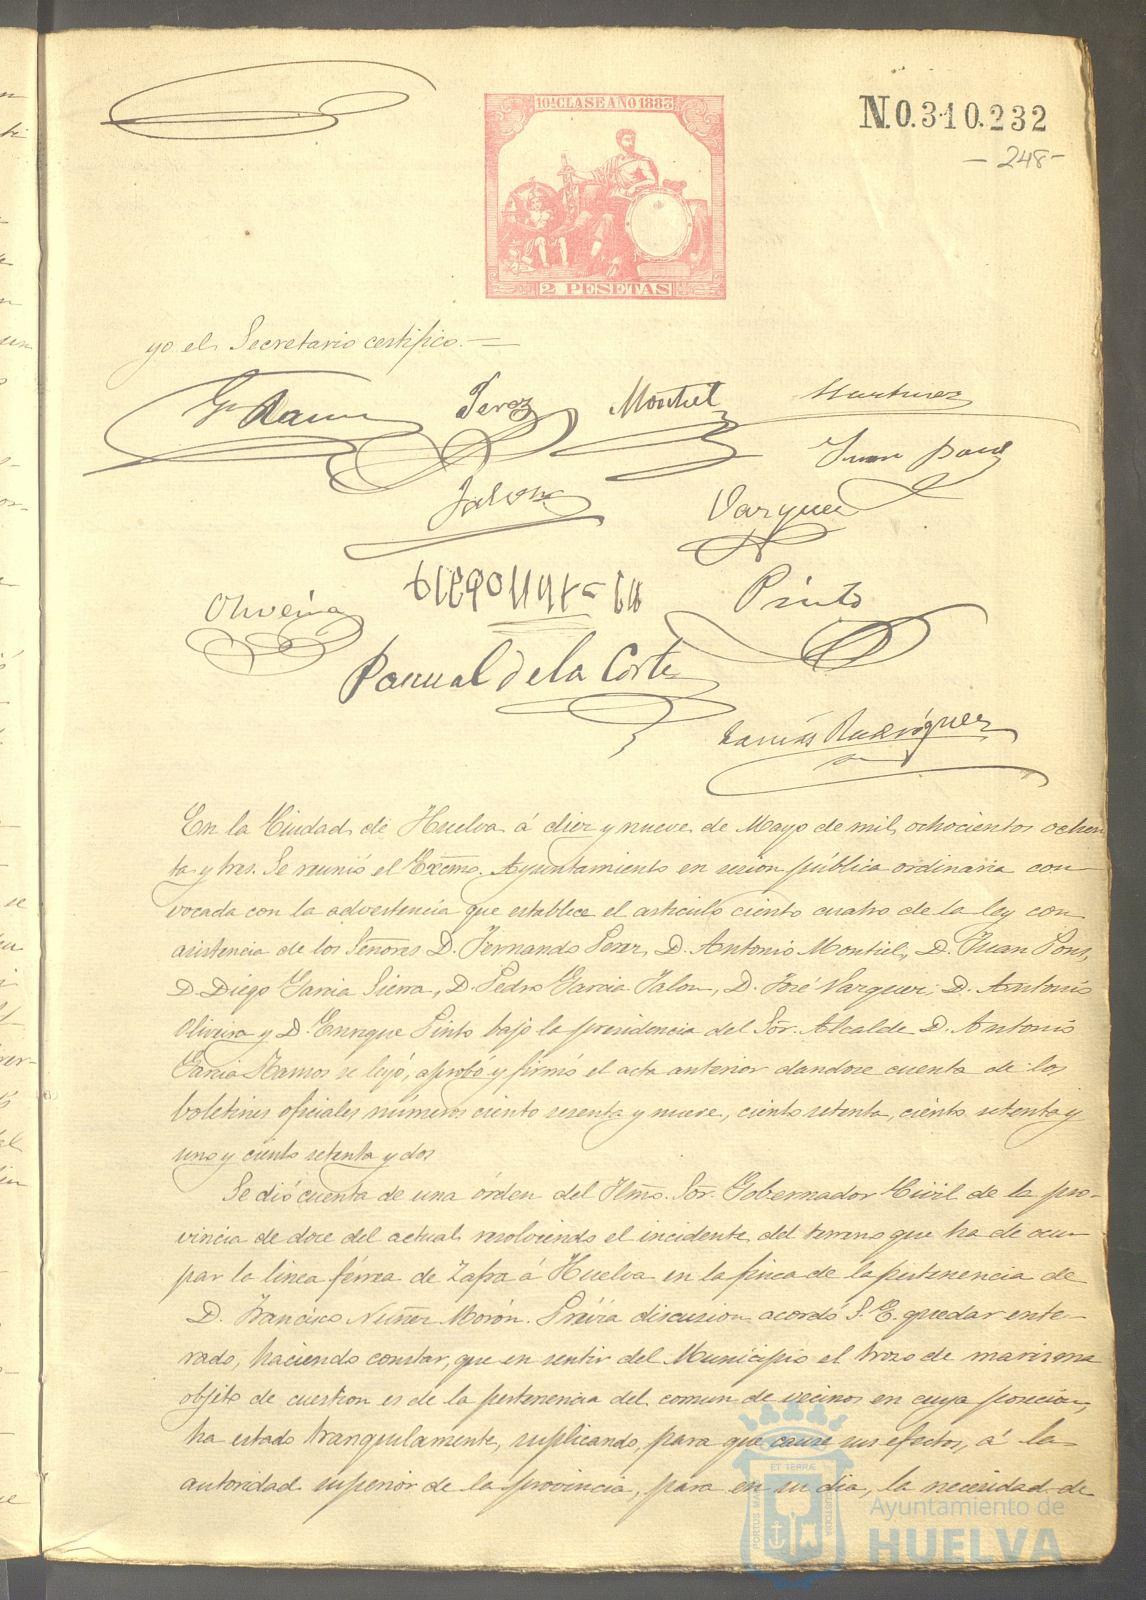 10ª CLASE AÑO 1883
2 PESETAS
N.0.310.232
- 248 -
yo el Secretario certifico.=
G. Ramos Perez Montiel Martinez
Juan Pons
Jalon Vazquez
Oliveira Pinto
Pascual de la Corte
Tomás Rodriguez
En la Ciudad de Huelva á diez y nueve de Mayo de mil ochocientos ochen
ta y tres. Se reunió el Excmo. Ayuntamiento en sesion pública ordinaria con
vocada con la advertencia que establece el articulo ciento cuatro de la ley con
asistencia de los Señores D. Fernando Perez, D. Antonio Montiel, D. Juan Pons,
D. Diego Garcia Sierra, D. Pedro Garcia Jalon, D. José Vazquez, D. Antonio
Oliveira y D. Enrique Pinto bajo la presidencia del Sor. Alcalde D. Antonio
Garcia Ramos se leyó, aprobó y firmó el acta anterior dandose cuenta de los
boletines oficiales números ciento sesenta y nueve, ciento setenta, ciento setenta y
uno y ciento setenta y dos
Se dió cuenta de una órden del Ilmo. Sor. Gobernador Civil de la pro-
vincia de doce del actual resolviendo el incidente del terreno que ha de ocu
par la linea férrea de Zafra á Huelva en la finca de la pertenencia de
D. Francisco Nuñez Morón. Prévia discusion acordó S. E. quedar ente-
rado, haciendo constar, que en sentir del Municipio el trozo de marisma
objeto de cuestion es de la pertenencia del comun de vecinos en cuya posecion
ha estado tranquilamente, suplicando, para que cause sus efectos, á la
autoridad superior de la provincia, para en su dia, la necesidad de
PORTUS MARIS ET TERRÆ CUSTODIA
Ayuntamiento de
HUELVA